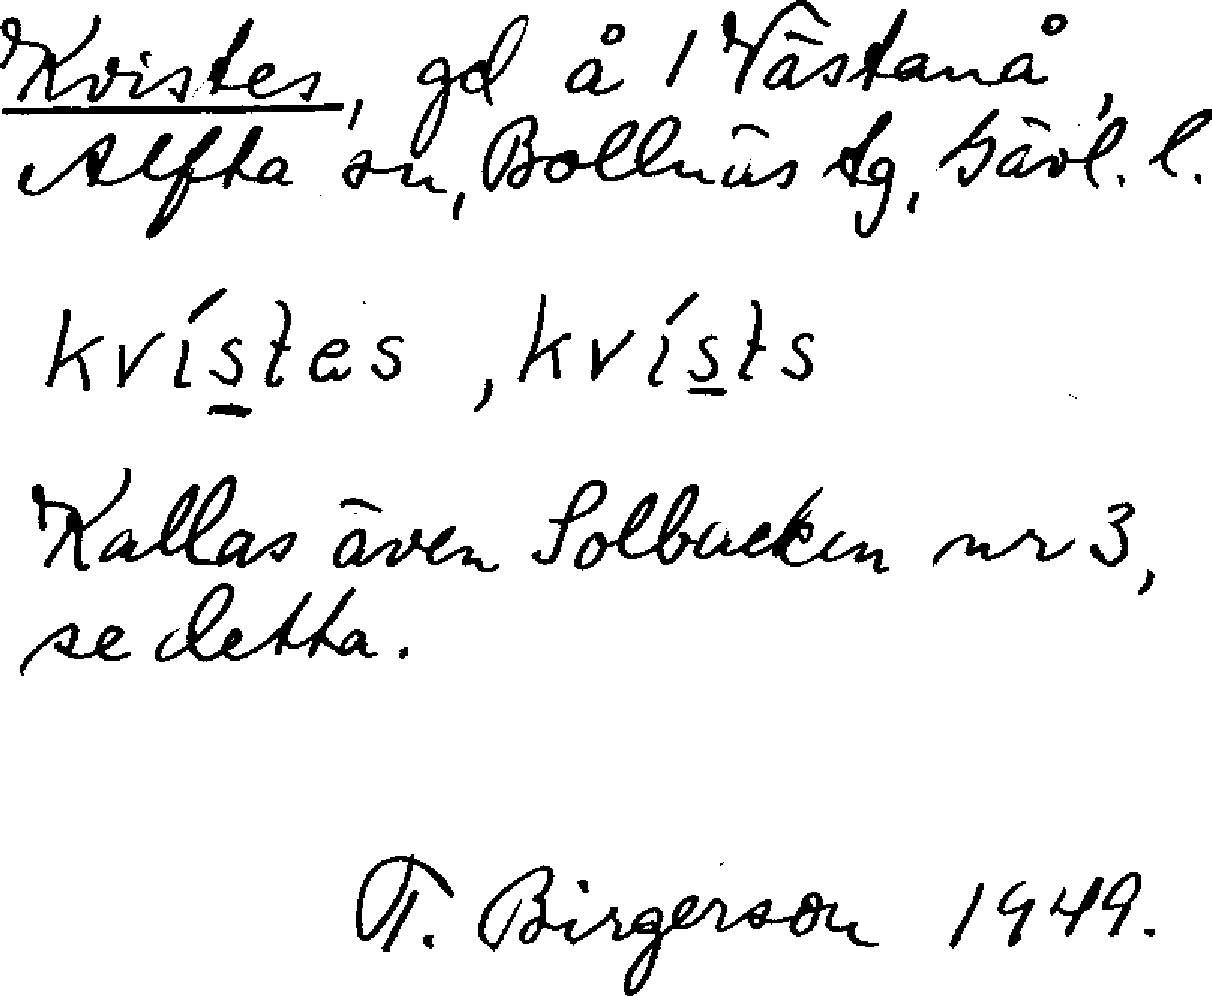 Kvistes, gd å 1 Västanå,
Alfta sn, Bollnäs tg, Gävl. l.
kvístes, kvísts
Kallas även Solbacken nr 3,
se detta.
T. Birgerson 1949.